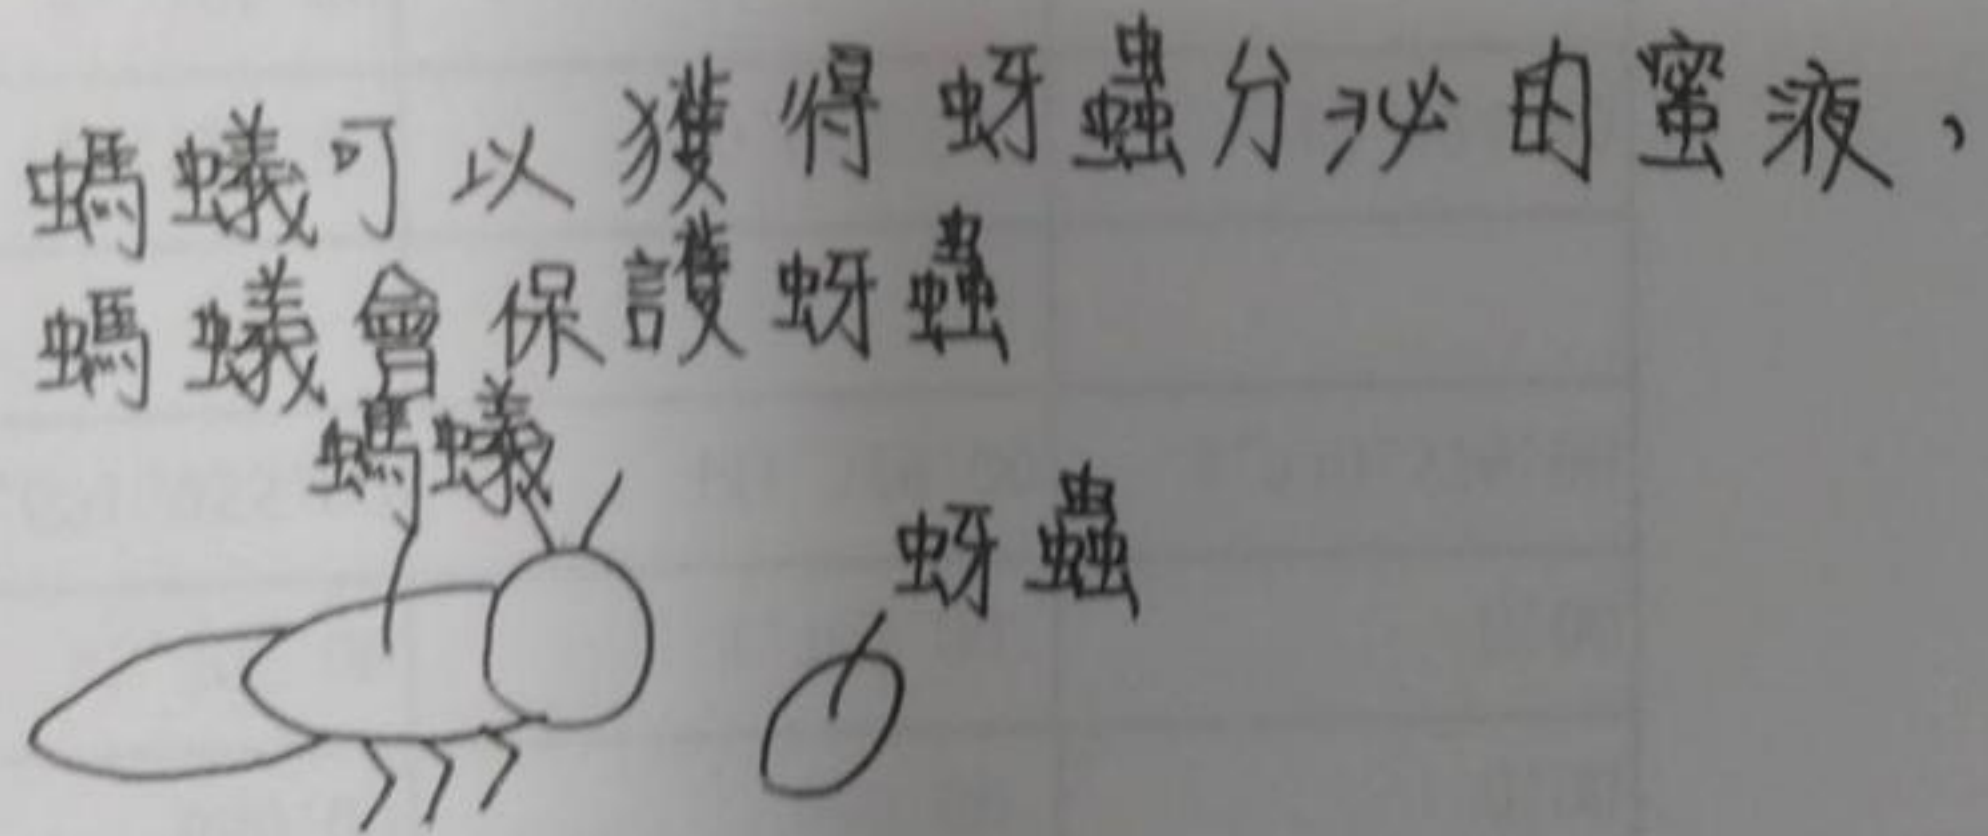 螞蟻可以獲得蚜蟲分泌的蜜液，
螞蟻會保護蚜蟲
螞蟻
蚜蟲